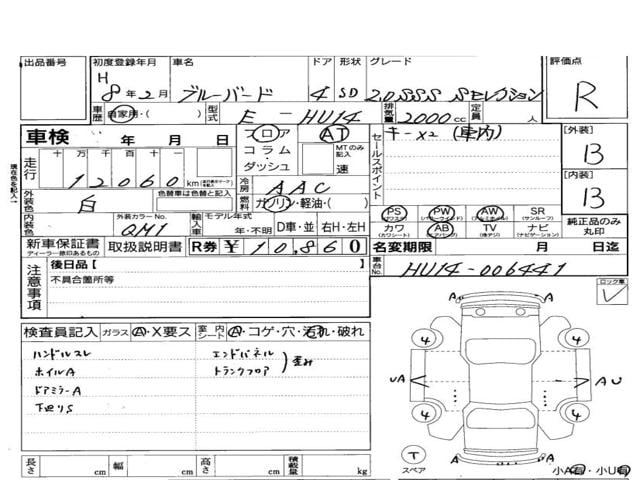 出品番号 初度登録年月 車名 ドア 形状 グレード 評価点
H 8年2月 ブルーバード 4 SD 2.0 SSS Sセレクション R
車歴 自家用・( ) 型式 E-HU14 排気量 2000cc 定員
車検 年 月 日 フロア AT セールスポイント キー×2 (車内) [外装]
コラム MTのみ記入 B
走行 十万千百十一 ダッシュ 速
12060 km
現在色を記入 [内装]
冷房 AAC B
外装色 白 色替車は色替と記入 燃料 ガソリン・軽油・( )
PS (パワステ) PW (パワーウインド) AW (アルミホイル) SR (サンルーフ)
内装色 外装カラーNo. QM1 輸入車 モデル年式 年・不明 D車・並 右H・左H
カワ (カワシート) AB (エアバッグ) TV (純テレビ) ナビ (ナビゲーション) 純正品のみ丸印
新車保証書 ディーラー捺印あるもの 取扱説明書 R券 ¥10,860 名変期限 月 日迄
注意事項 後日品[ ] 車台No. HU14-006441
不具合箇所等 ロック車
検査員記入 ガラス A・X要ス 室内シート A・コゲ・穴・汚れ・破れ
ハンドルスレ エンドパネル
ホイルA トランクフロア 歪み
ドアミラーA
下廻りS
A A
4 4
UA AU
4 4
T スペア A A
小A有・小U有
長さ cm 幅 cm 高さ cm 積載量 kg